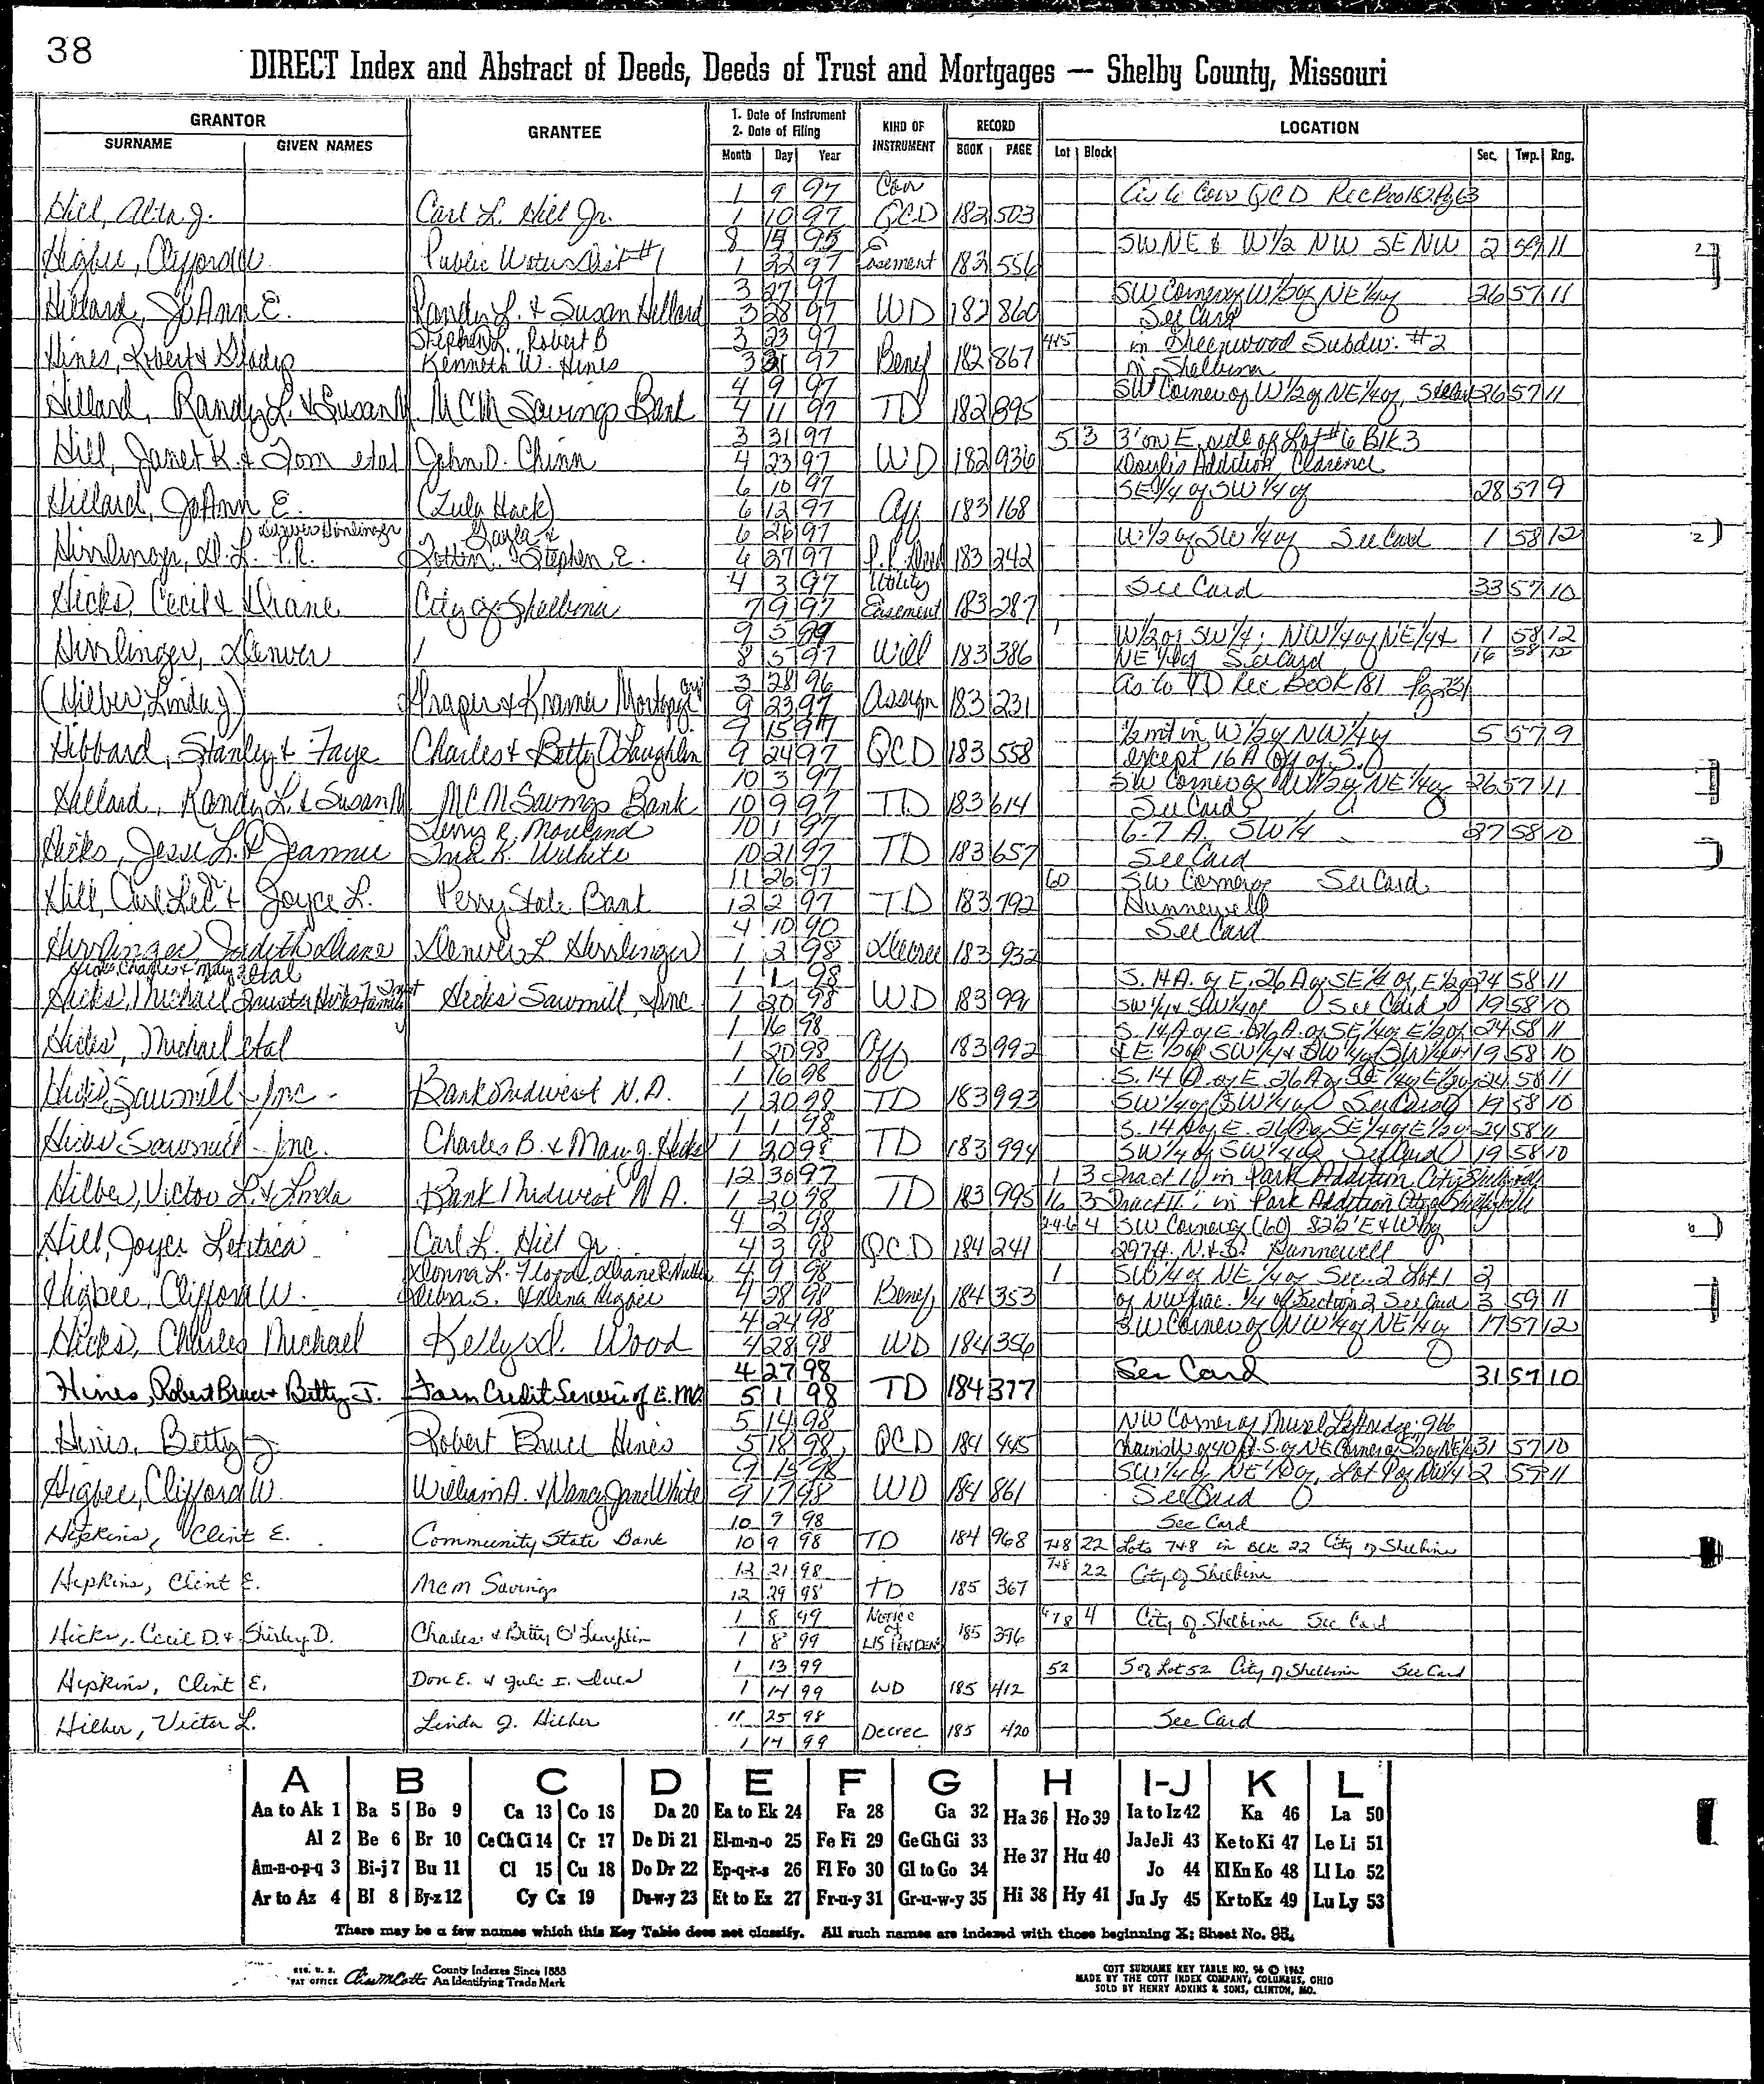 38
DIRECT Index and Abstract of Deeds, Deeds of Trust and Mortgages — Shelby County, Missouri
GRANTOR GRANTEE 1. Date of Instrument 2. Date of Filing KIND OF INSTRUMENT RECORD LOCATION
SURNAME GIVEN NAMES Month Day Year BOOK PAGE Lot Block Sec. Twp. Rng.
1 9 97 Cor
Hill, Alta J. Carl L. Hill Jr. 1 10 97 QCD 182 503
8 95 SW NE & W 1/2 NW SE NW 2 59 11
Higbee, Clifford W. Public Water Dist #1 1 22 97 Easement 182 556
3 27 97 SW Corner of W 1/2 of NE 1/4 of 26 57 11
Hillard, JoAnn E. Randy L. & Susan Hillard 3 28 97 WD 182 860 See Card
Stephen L., Robert B 3 23 97 in Greenwood Subdiv. #2
Hines, Robert & Gladys Kenneth W. Hines 3 31 97 Benef 182 867 in Shelbina
4 9 97 SW Corner of W 1/2 of NE 1/4 of, See Card 26 57 11
Hillard, Randy L. & Susan M MCM Savings Bank 4 11 97 TD 182 895
3 31 97 5 3 3' on E. side of Lot #6 Blk 3
Hill, Janet K. & Tom etal John D. Chinn 4 23 97 WD 182 936 Doyles Addition, Clarence
6 10 97 SE 1/4 of SW 1/4 of 28 57 9
Hillard, JoAnn E. (Zula Hack) 6 12 97 Aff 183 168
Denver Hirrlinger Gayla & 6 26 97 W 1/2 of SW 1/4 of See Card 1 58 12
Hirrlinger, D. L. P.R. Stephen E. 6 27 97 P.R. Deed 183 242
4 3 97 Utility See Card 33 57 10
Hicks, Cecil & Diane City of Shelbina 7 9 97 Easement 183 287
9 5 W 1/2 of SW 1/4; NW 1/4 of NE 1/4 & 1 58 12
Hirrlinger, Denver / 8 5 97 Will 183 386 NE 1/4 of See Card 16 58 12
3 28 96 As to TD Rec Book 181
(Hilber, Linda J) Draper & Kramer Mortgage 9 23 97 Assign 183 231
9 15 97 1/2 int in W 1/2 of NW 1/4 of 5 57 9
Hibbard, Stanley & Faye Charles & Betty O'Laughlin 9 24 97 QCD 183 558 except 16 A off of S.
10 3 97 SW Corner of W 1/2 of NE 1/4 of 26 57 11
Hillard, Randy L. & Susan M MCM Savings Bank 10 9 97 TD 183 614 See Card
Terry R. Moreland 10 1 97 6.7 A. SW 1/4 58 10
Hicks, Jesse L. & Jeannie K. Wilhite 10 21 97 TD 183 657 See Card
11 26 97 60 SW Corner of See Card
Hill, Carl Lee & Joyce L. Perry State Bank 12 2 97 TD 183 792 Hunnewell
4 10 90 See Card
Hirrlinger, Judith Diane Denver L. Hirrlinger 1 2 98 Decree 183 932
Hicks, Charles & Mary J etal 1 1 98 S. 14 A. of E. 26 A of SE 1/4 of, E 1/2 of 24 58 11
Hicks, Michael Trustee Hicks Family Trust Hicks Sawmill, Inc 1 20 98 WD 183 991 SW 1/4 & SW 1/4 of See Card 19 58 10
1 16 98 S. 14 A of E. 26 A. of SE 1/4 of E 1/2 of 24 58 11
Hicks, Michael etal 1 20 98 Aff. 183 992 & E 1/2 of SW 1/4 & SW 1/4 of SW 1/4 of 19 58 10
1 16 98 S. 14 A. of E. 26 A of SE 1/4 of E 1/2 of 24 58 11
Hicks Sawmill Inc. Bank Midwest N.A. 1 20 98 TD 183 993 SW 1/4 of SW 1/4 of See Card 19 58 10
1 1 98 S. 14 A of E. 26 A of SE 1/4 of E 1/2 of 24 58 11
Hicks Sawmill Inc. Charles B. & Mary J. Hicks 1 20 98 TD 183 994 SW 1/4 of SW 1/4 of See Card 19 58 10
12 30 97 1 3 Tract I in Park Addition City
Hilber, Victor L. & Linda Bank Midwest N.A. 1 20 98 TD 183 995 16 3 Tract II: in Park Addition City of
4 2 98 2-4-6 4 SW Corner of (60) 82'6" E & W by
Hill, Joyce Letitica Carl L. Hill Jr. 4 3 98 QCD 184 241 297 ft. N. & S. Hunnewell
Donna L. Floyd, Diane R. 4 9 98 1 SW 1/4 of NE 1/4 of Sec. 2 Lot 1 2
Higbee, Clifford W. Higbee 4 28 98 Benef. 184 353 of NW frac. 1/4 of Section 2 See Card 3 59 11
4 24 98 SW Corner of NW 1/4 of NE 1/4 of 17 57 12
Hicks, Charles Michael Kelly D. Wood 4 28 98 WD 184 356
4 27 98 See Card 31 57 10
Hines, Robert Bruce & Betty J. Farm Credit Services of E. MO 5 1 98 TD 184 377
5 14 98 NW Corner of
Hines, Betty J. Robert Bruce Hines 5 18 98 QCD 184 445 31 57 10
9 15 98 SW 1/4 of NE 1/4 of, Lot of NW 1/4 2 59 11
Higbee, Clifford W. William A. & Nancy Jane White 9 17 98 WD 184 861 See Card
10 9 98 See Card
Hipkins, Clint E. Community State Bank 10 9 98 TD 184 968 7&8 22 Lots 7&8 in Blk 22 City of Shelbina
12 21 98 7&8 22 City of Shelbina
Hipkins, Clint E. MCM Savings 12 29 98 TD 185 367
1 8 99 Notice of 4 City of Shelbina See Card
Hicks, Cecil D. & Shirley D. Charles & Betty O'Laughlin 1 8 99 LIS PENDENS 185 396
1 13 99 52 5 of Lot 52 City of Shelbina See Card
Hipkins, Clint E. Don E. & Julie I. 1 14 99 WD 185 412
11 25 98 See Card
Hilber, Victor L. Linda J. Hilber 1 14 99 Decree 185 420
A B C D E F G H I-J K L
Aa to Ak 1 Ba 5 Bo 9 Ca 13 Co 16 Da 20 Ea to Ek 24 Fa 28 Ga 32 Ha 36 Ho 39 Ia to Iz 42 Ka 46 La 50
Al 2 Be 6 Br 10 Ce Ch Ci 14 Cr 17 De Di 21 El-m-n-o 25 Fe Fi 29 Ge Gh Gi 33 He 37 Hu 40 Ja Je Ji 43 Ke to Ki 47 Le Li 51
Am-n-o-p-q 3 Bi-j 7 Bu 11 Cl 15 Cu 18 Do Dr 22 Ep-q-r-s 26 Fl Fo 30 Gl to Go 34 Jo 44 Kl Kn Ko 48 Ll Lo 52
Ar to Az 4 Bl 8 By-z 12 Cy Cz 19 Du-w-y 23 Et to Ez 27 Fr-u-y 31 Gr-u-w-y 35 Hi 38 Hy 41 Ju Jy 45 Kr to Kz 49 Lu Ly 53
There may be a few names which this Key Table does not classify. All such names are indexed with those beginning X; Sheet No. 95.
REG. U. S. PAT OFFICE County Indexes Since 1888 An Identifying Trade Mark
COTT SURNAME KEY TABLE NO. 96 © 1962
MADE BY THE COTT INDEX COMPANY, COLUMBUS, OHIO
SOLD BY HENRY ADKINS & SONS, CLINTON, MO.